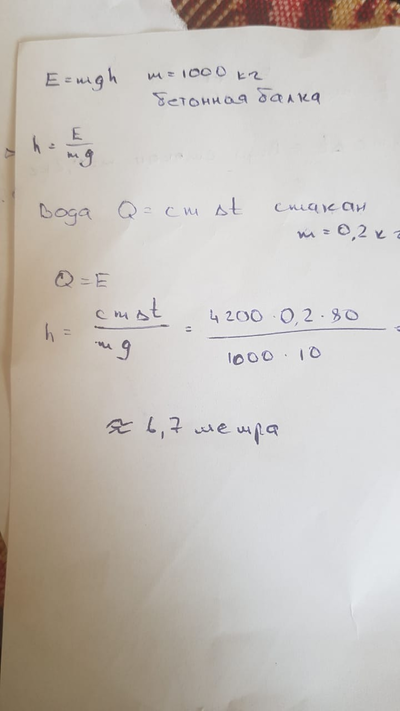 E = mgh m = 1000 кг
бетонная балка
h = E/mg
Вода Q = cm Δt стакан
m = 0,2 кг
Q = E
h = cmΔt/mg = 4200 · 0,2 · 80/1000 · 10 =
≈ 6,7 метра